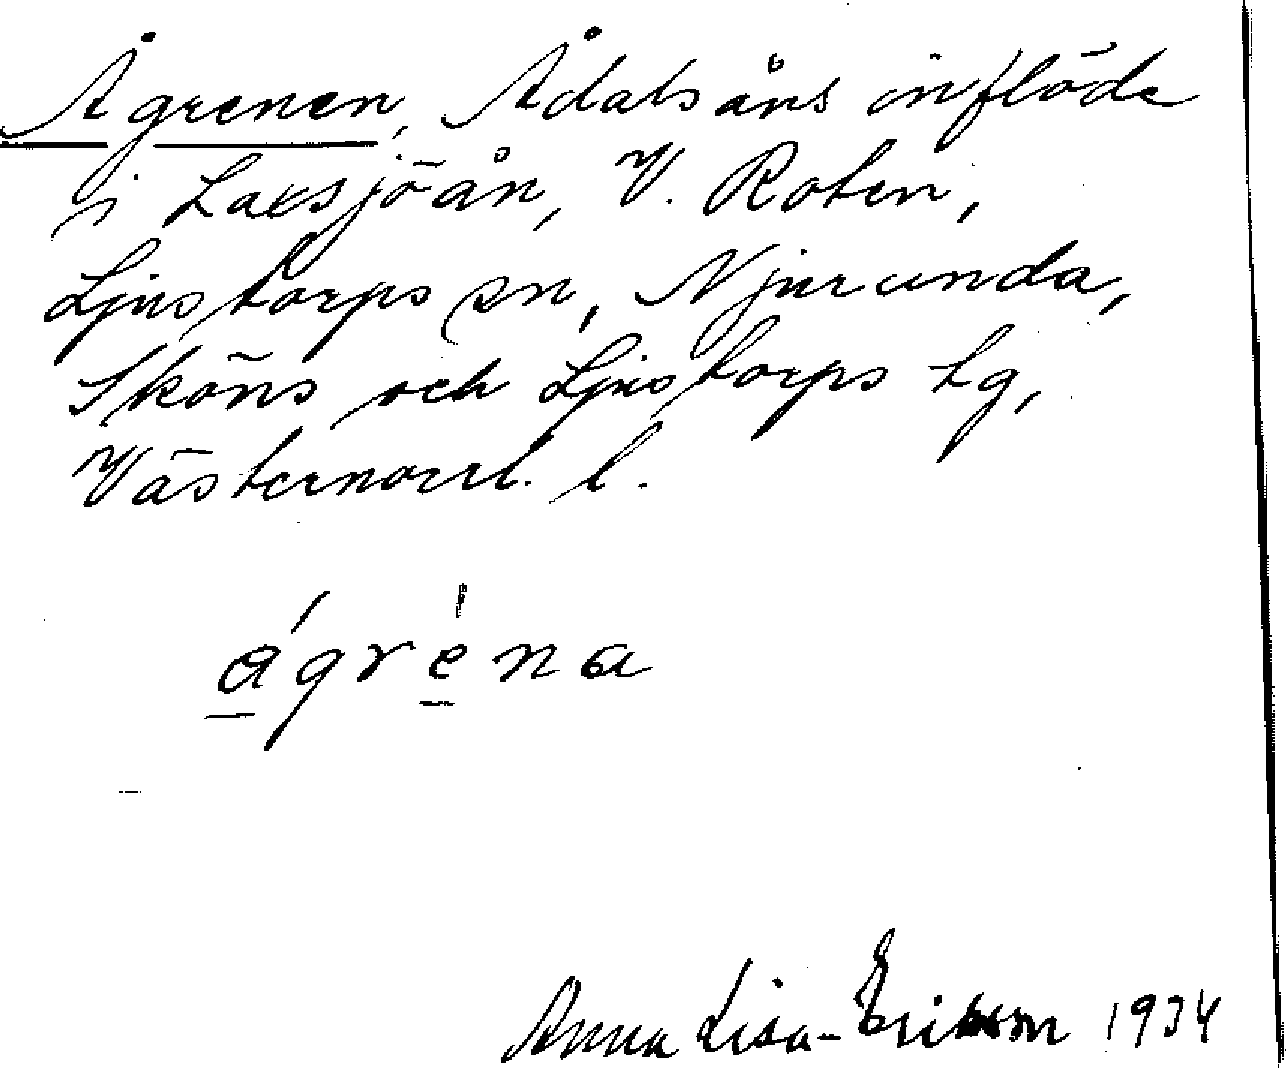 Ågrenen, Ådalsåns inflöde
i Laxsjöån, V. Roten,
Ljustorps sn, Njurunda,
Sköns och Ljustorps tg,
Västernorrl. l.
ágréna
Anna Lisa-Erikson 1934